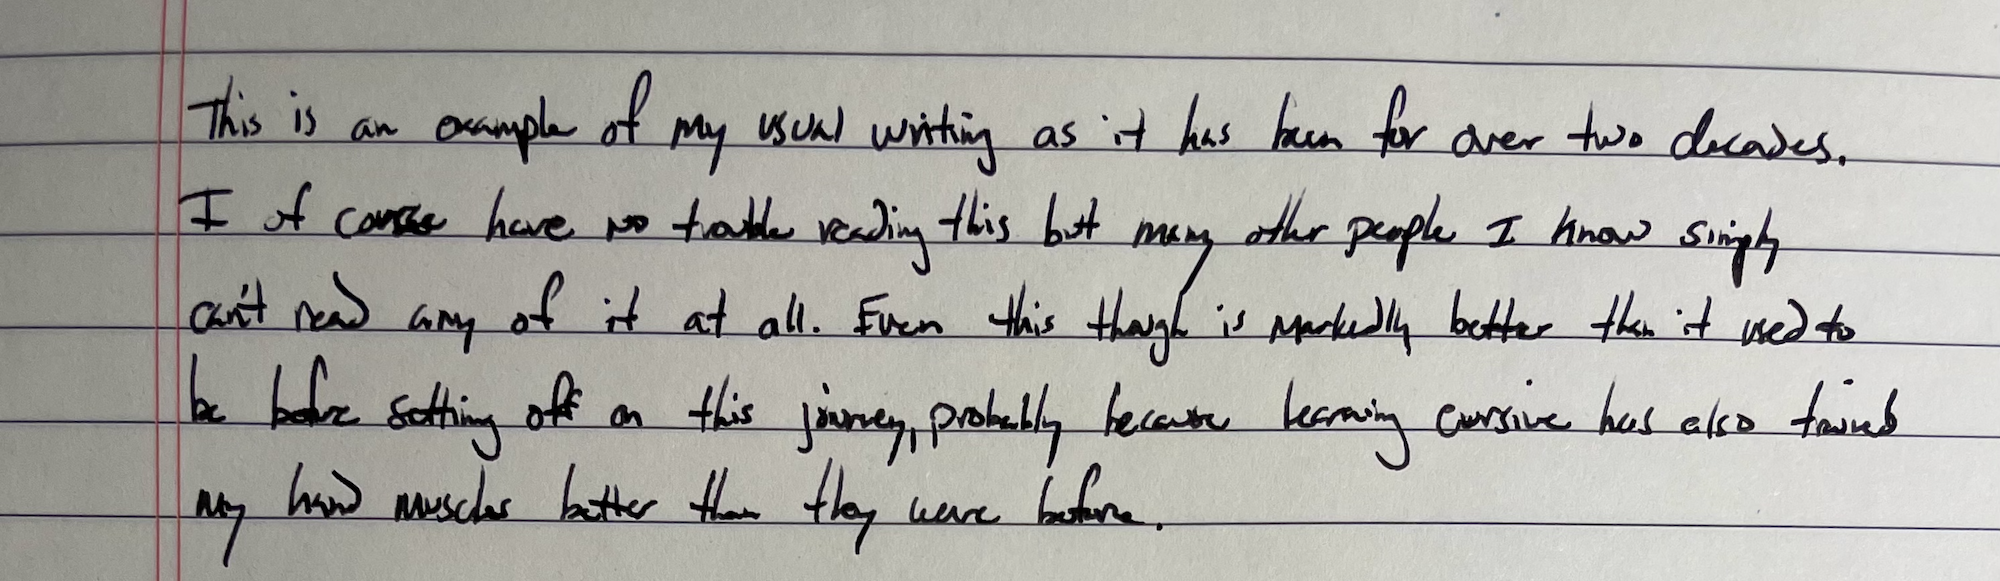 This is an example of my usual writing as it has been for over two decades.
I of course have no trouble reading this but many other people I know simply
can't read any of it at all. Even this though is markedly better than it used to
be before setting off on this journey, probably because learning cursive has also trained
my hand muscles better than they were before.